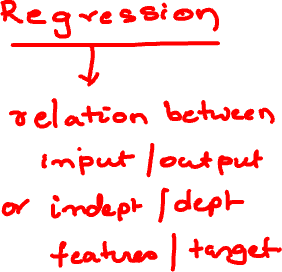 Regression
relation between
input/output
or indept/dept
features/target